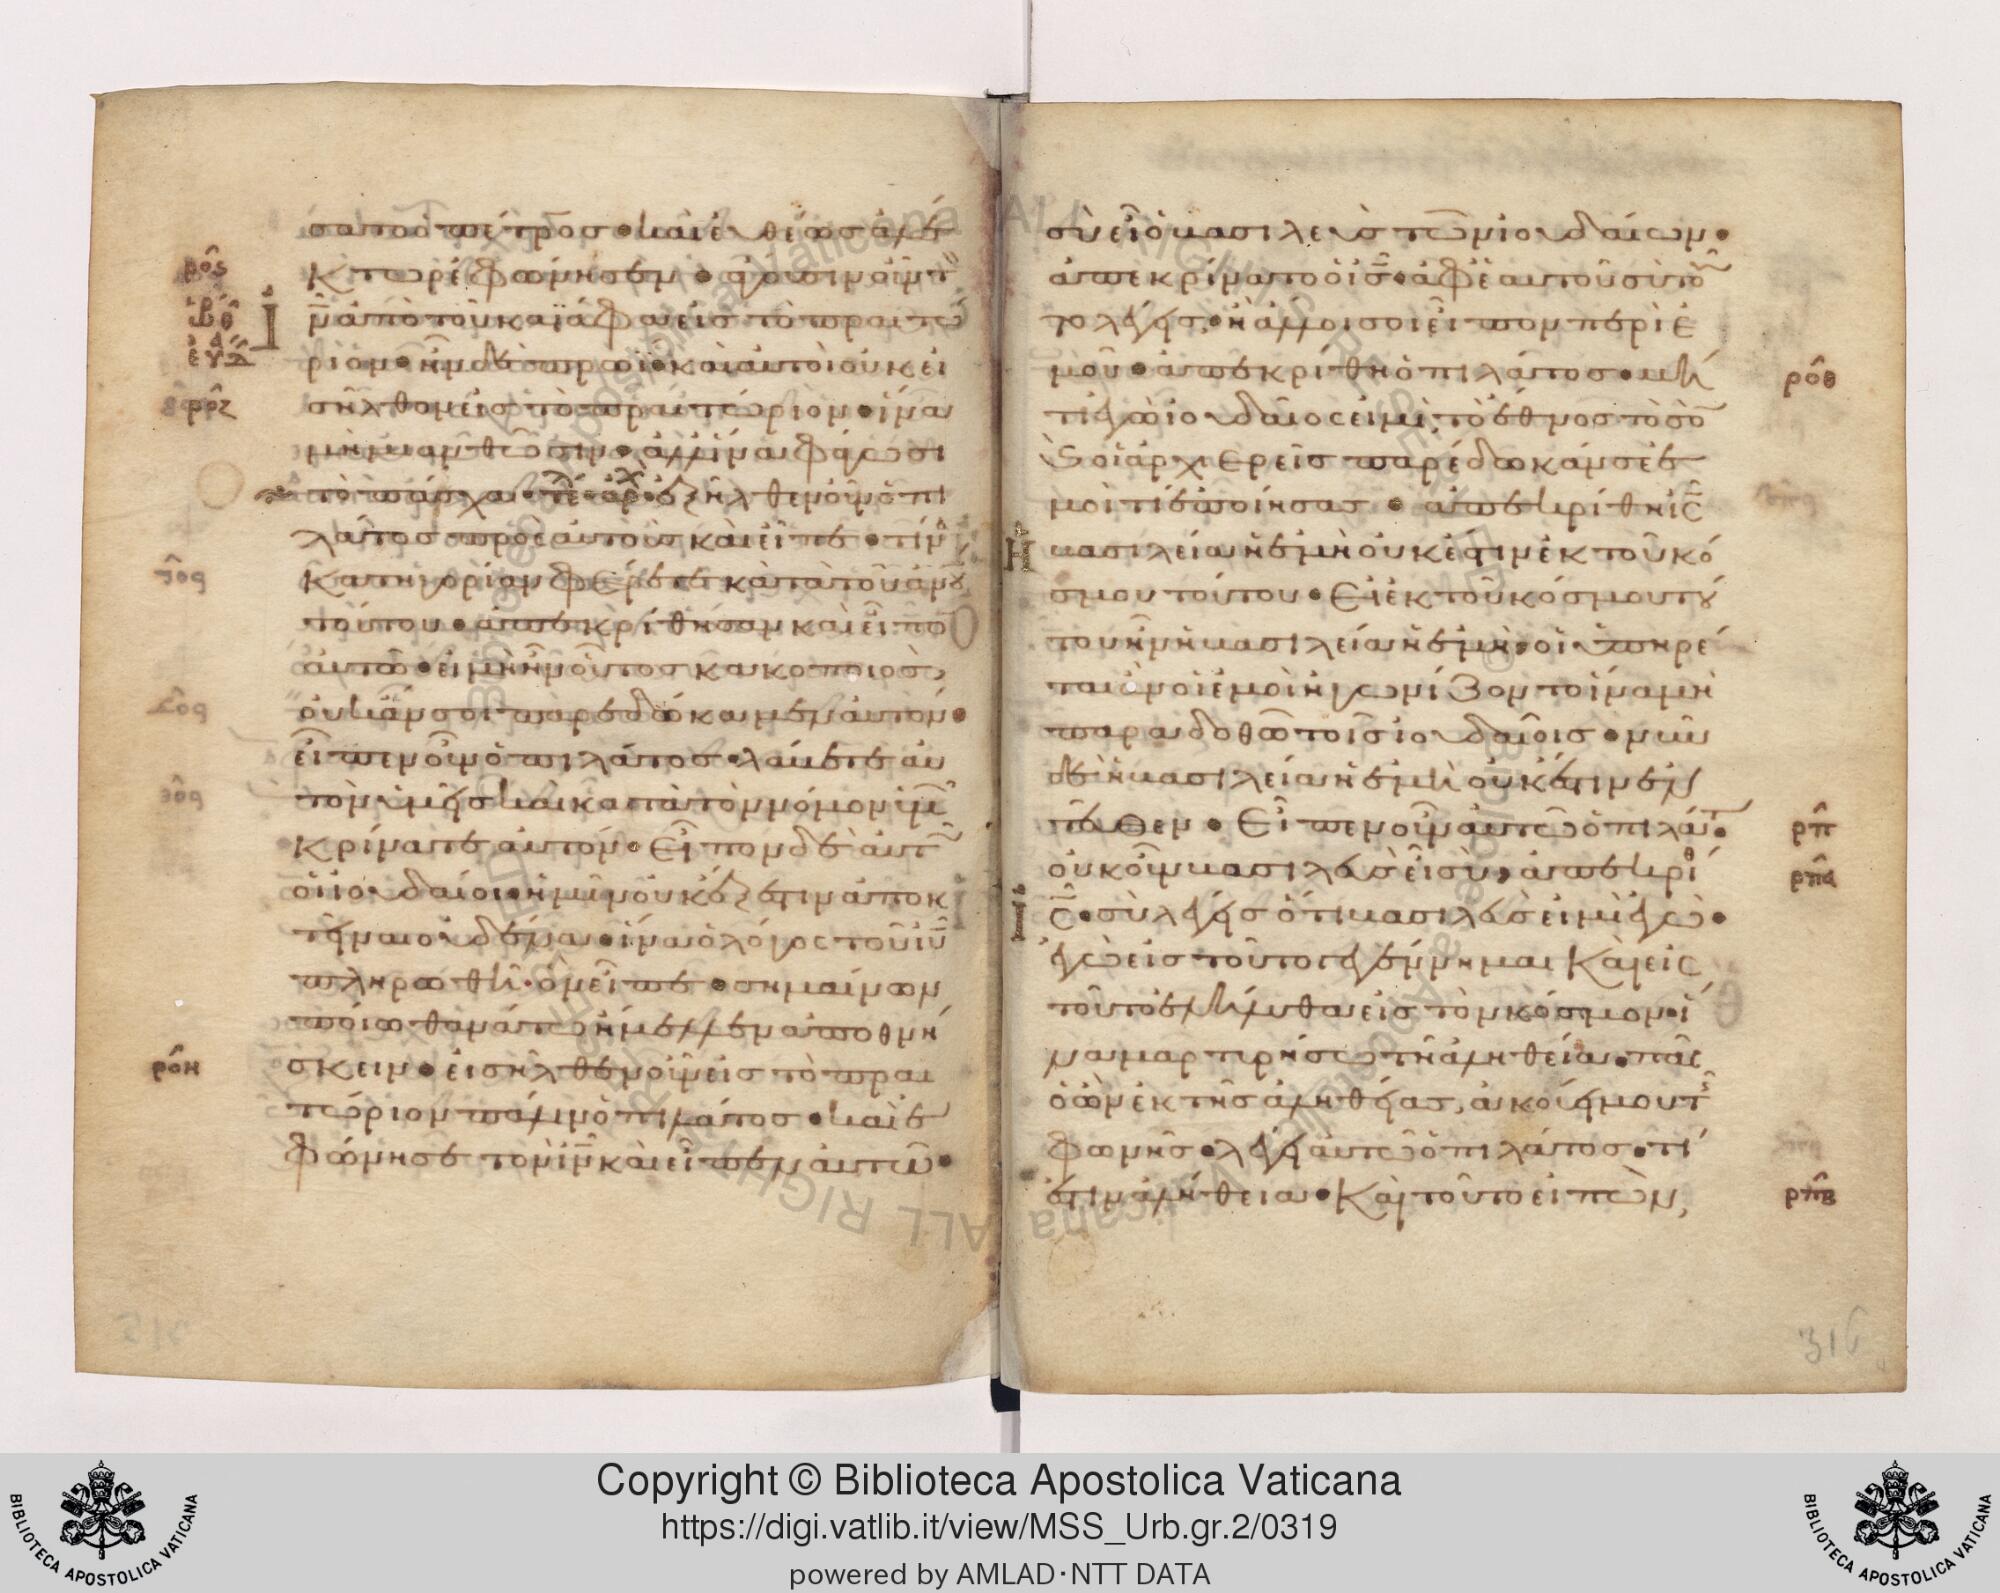 σατο ὁ πέτρος· καὶ εὐθέως ἀλέ
κτωρ ἐφώνησεν· ἄγουσιν οὖν τ
ῑν ἀπὸ τοῦ καϊάφα εἰς τὸ πραιτώ
ριον· ἦν δὲ πρωΐ· καὶ αὐτοὶ οὐκ εἰ
σῆλθον εἰς τὸ πραιτώριον· ἵνα
μὴ μιανθῶσιν· ἀλλ' ἵνα φάγωσι
τὸ πάσχα· τε· αρχ· ἐξῆλθεν οὖν ὁ πι
λάτος πρὸς αὐτοὺς καὶ εἶπε· τίν
κατηγορίαν φέρετε κατὰ τοῦ ἀνου
τούτου· ἀπεκρίθησαν καὶ εἶπο
αὐτῶ· εἰ μὴ ἦν οὗτος κακοποιὸς,
οὐκ ἄν σοι παρεδώκαμεν αὐτόν·
εἶπεν οὖν ὁ πιλάτος· λάβετε αὐ
τὸν ὑμεῖς καὶ κατὰ τὸν νόμον ὑμ
κρίνατε αὐτόν· Εἶπον δὲ αὐτ
οἱ ἰουδαίοι· ἡμῖν οὐκ ἔξεστιν ἀποκ
τεῖναι οὐδένα· ἵνα ὁ λόγος τοῦ ἰῡ
πληρωθῆ· ὃν εἶπε· σημαίνων
ποίω θανάτω ἤμελλεν ἀποθνή
σκειν· εἰσῆλθεν οὖν εἰς τὸ πραι
τώριον πάλιν ὁ πιλάτος· καὶ ἐ
φώνησε τὸν ἰν̄ καὶ εἶπεν αὐτῶ·
ροϛ
ροζ
ροη
σὺ εἶ ὁ βασιλεὺς τῶν ἰουδαίων·
ἀπεκρίνατο ὁ ἰς̄· ἀφ' ἑαυτοῦ σὺ το
το λέγεις, ἢ ἄλλοι σοι εἶπον περὶ ἐ
μοῦ· ἀπεκρίθη ὁ πιλάτος· μή
τι ἐγὼ ἰουδαῖος εἰμι, τὸ ἔθνος τὸ σὸ
καὶ οἱ ἀρχιερεῖς παρέδωκάν σε ἐ
μοὶ τί ἐποίησας· ἀπεκρίθη ις̄
Η βασιλεία ἡ ἐμὴ οὐκ ἔστιν ἐκ τοῦ κό
σμου τούτου· Εἰ ἐκ τοῦ κόσμου τού
του ἦν ἡ βασιλεία ἡ ἐμὴ, οἱ ὑπηρέ
ται ἂν οἱ ἐμοὶ ἠγωνίζοντο ἵνα μὴ
παραδοθῶ τοῖς ἰουδαίοις· νῦν
δὲ ἡ βασιλεία ἡ ἐμὴ οὐκ ἔστιν ἐν
τεῦθεν· Εἶπεν οὖν αὐτῶ ὁ πιλάτ·
οὐκοῦν βασιλεὺς εἶ σὺ, ἀπεκρίθ
ις̄· σὺ λέγεις ὅτι βασιλεύς εἰμι ἐγώ·
ἐγὼ εἰς τοῦτο γεγέννημαι καὶ εἰς
τοῦτο ἐλήλυθα εἰς τὸν κόσμον· ἵ
να μαρτυρήσω τῆ ἀληθεία· πᾶς
ὁ ὢν ἐκ τῆς ἀληθείας, ἀκούει μου τ
φωνῆς· λέγει αὐτῶ ὁ πιλάτος· τί
ἐστιν ἀλήθεια· Καὶ τοῦτο εἰπὼν,
ροθ
ρπ
ρπα
ρπβ
316
Copyright © Biblioteca Apostolica Vaticana
https://digi.vatlib.it/view/MSS_Urb.gr.2/0319
powered by AMLAD·NTT DATA
BIBLIOTECA APOSTOLICA VATICANA
BIBLIOTECA APOSTOLICA VATICANA